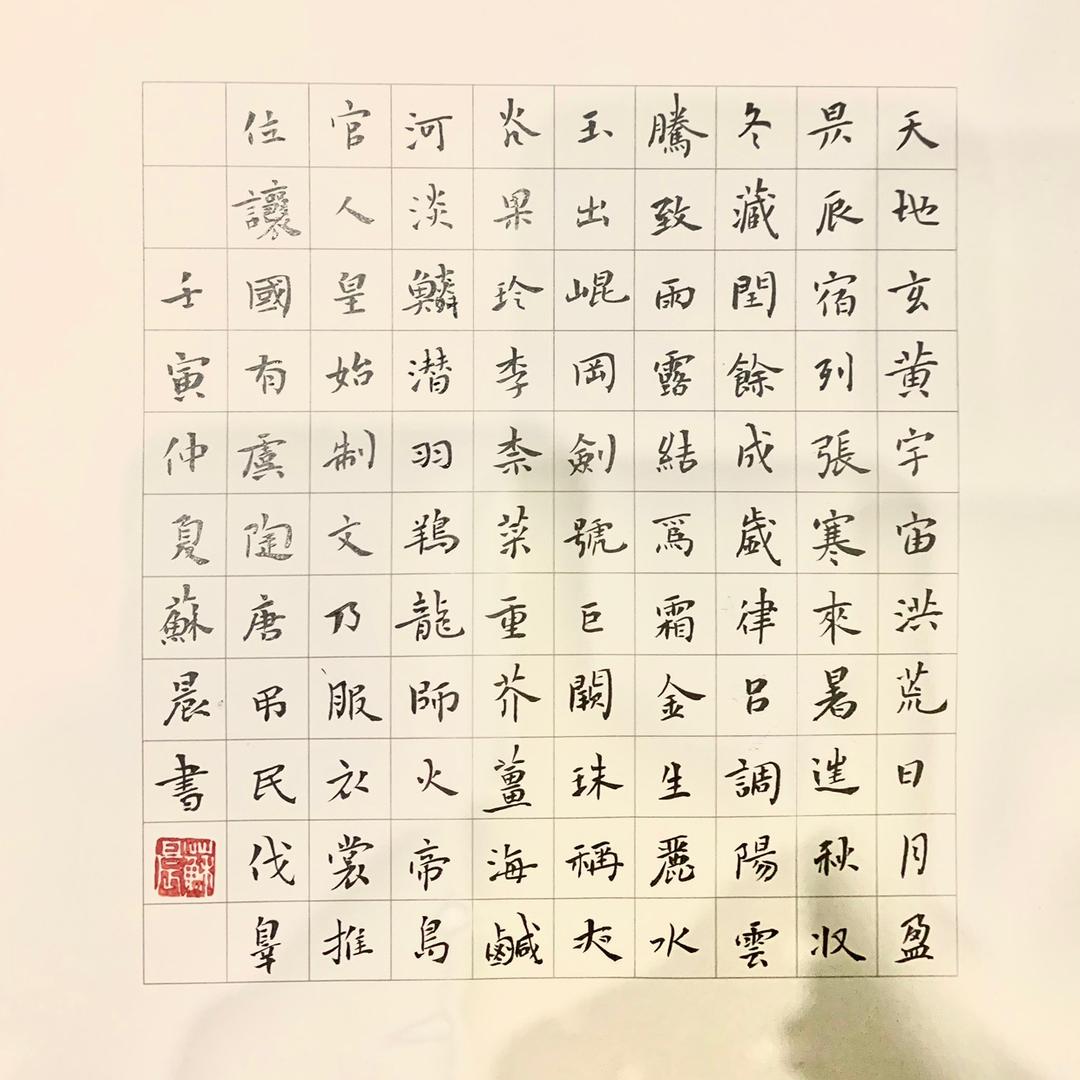 天地玄黃宇宙洪荒日月盈
昃辰宿列張寒來暑往秋收
冬藏閏餘成歲律呂調陽雲
騰致雨露結爲霜金生麗水
玉出崐岡劍號巨闕珠稱夜
光果珍李柰菜重芥薑海鹹
河淡鱗潛羽翔龍師火帝鳥
官人皇始制文乃服衣裳推
位讓國有虞陶唐吊民伐辠
壬寅仲夏蘇晨書
蘇晨